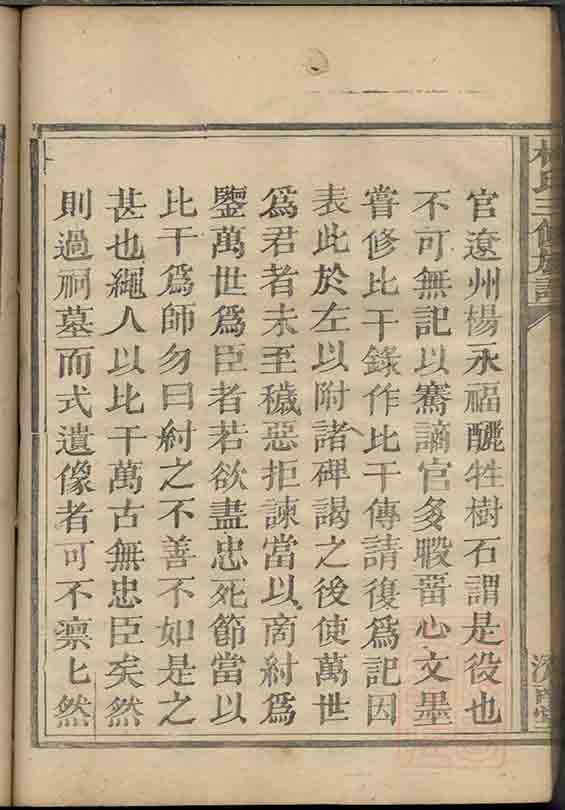 林氏三修族譜
官遼州楊永福釃牲樹石謂是役也
不可無記以騫謫官多暇畱心文墨
嘗修比干錄作比干傳請復爲記因
表此於左以附諸碑謁之後使萬世
爲君者未至穢惡拒諫當以商紂爲
鑒萬世爲臣者若欲盡忠死節當以
比干爲師勿曰紂之不善不如是之
甚也繩人以比干萬古無忠臣矣然
則過祠墓而式遺像者可不凛匕然